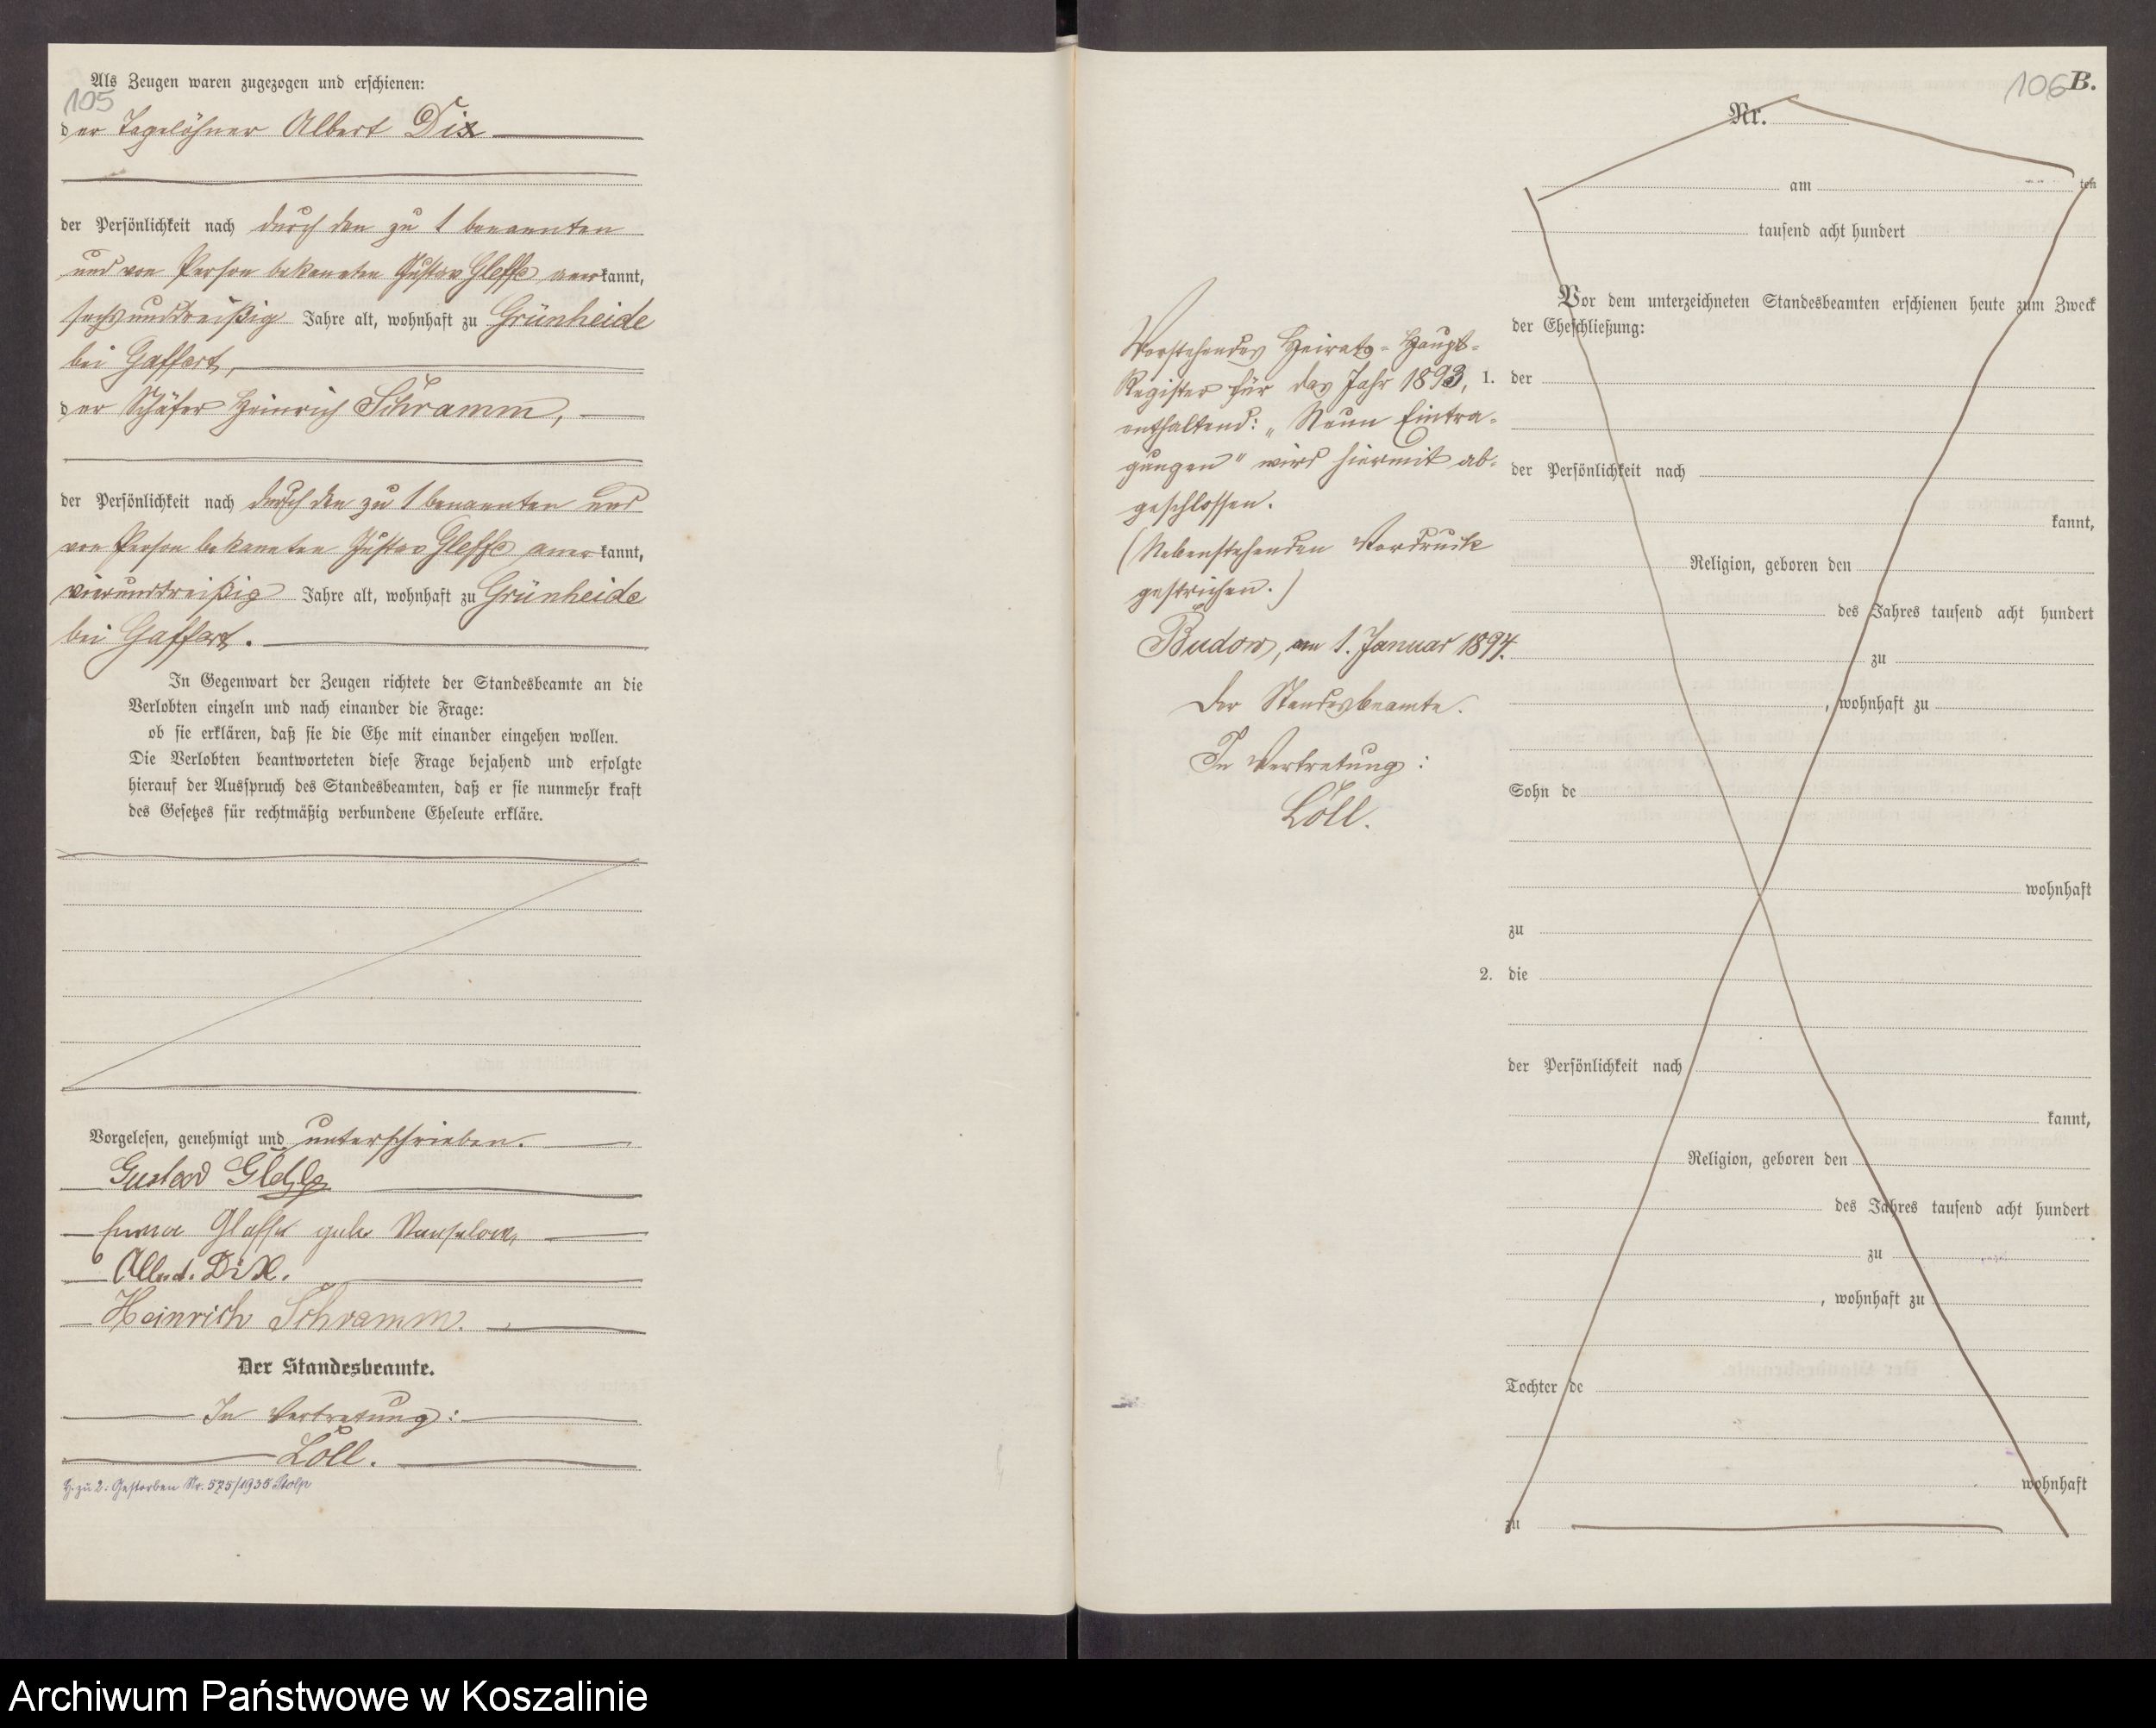 Als Zeugen waren zugezogen und erschienen:
105
der Tagelöhner Albert Dix
der Persönlichkeit nach durch den zu 1 benannten
und von Person bekannten Gustav Gleffe anerkannt,
sechsunddreißig Jahre alt, wohnhaft zu Grünheide
bei Gaffert,
der Schäfer Heinrich Schramm,
der Persönlichkeit nach durch den zu 1 benannten und
von Person bekannten Gustav Gleffe anerkannt,
vierunddreißig Jahre alt, wohnhaft zu Grünheide
bei Gaffert.
In Gegenwart der Zeugen richtete der Standesbeamte an die
Verlobten einzeln und nach einander die Frage:
ob sie erklären, daß sie die Ehe mit einander eingehen wollen.
Die Verlobten beantworteten diese Frage bejahend und erfolgte
hierauf der Ausspruch des Standesbeamten, daß er sie nunmehr kraft
des Gesetzes für rechtmäßig verbundene Eheleute erkläre.
Vorgelesen, genehmigt und unterschrieben.
Gustav Gleffe
Emma Gleffe geb.
Albert Dix.
Heinrich Schramm.
Der Standesbeamte.
In Vertretung:
Löll.
H. zu 2: Gestorben Nr. 575/1935 Stolp
Vorstehendes Heirats-Haupt-
Register für das Jahr 1893,
enthaltend: „Neun Eintra-
gungen" wird hiermit ab-
geschlossen.
(Nebenstehenden Vordruck
gestrichen.)
Budow, am 1. Januar 1894.
Der Standesbeamte.
In Vertretung:
Löll.
106 B.
Nr.
am ten
tausend acht hundert
Vor dem unterzeichneten Standesbeamten erschienen heute zum Zweck
der Eheschließung:
1. der
der Persönlichkeit nach
kannt,
Religion, geboren den
des Jahres tausend acht hundert
zu
, wohnhaft zu
Sohn de
wohnhaft
zu
2. die
der Persönlichkeit nach
kannt,
Religion, geboren den
des Jahres tausend acht hundert
zu
, wohnhaft zu
Tochter de
wohnhaft
zu
Archiwum Państwowe w Koszalinie